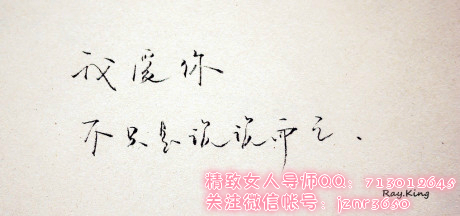 我爱你
不只是说说而已.
Ray.King
精致女人导师QQ：713012645
关注微信帐号：jznr3660